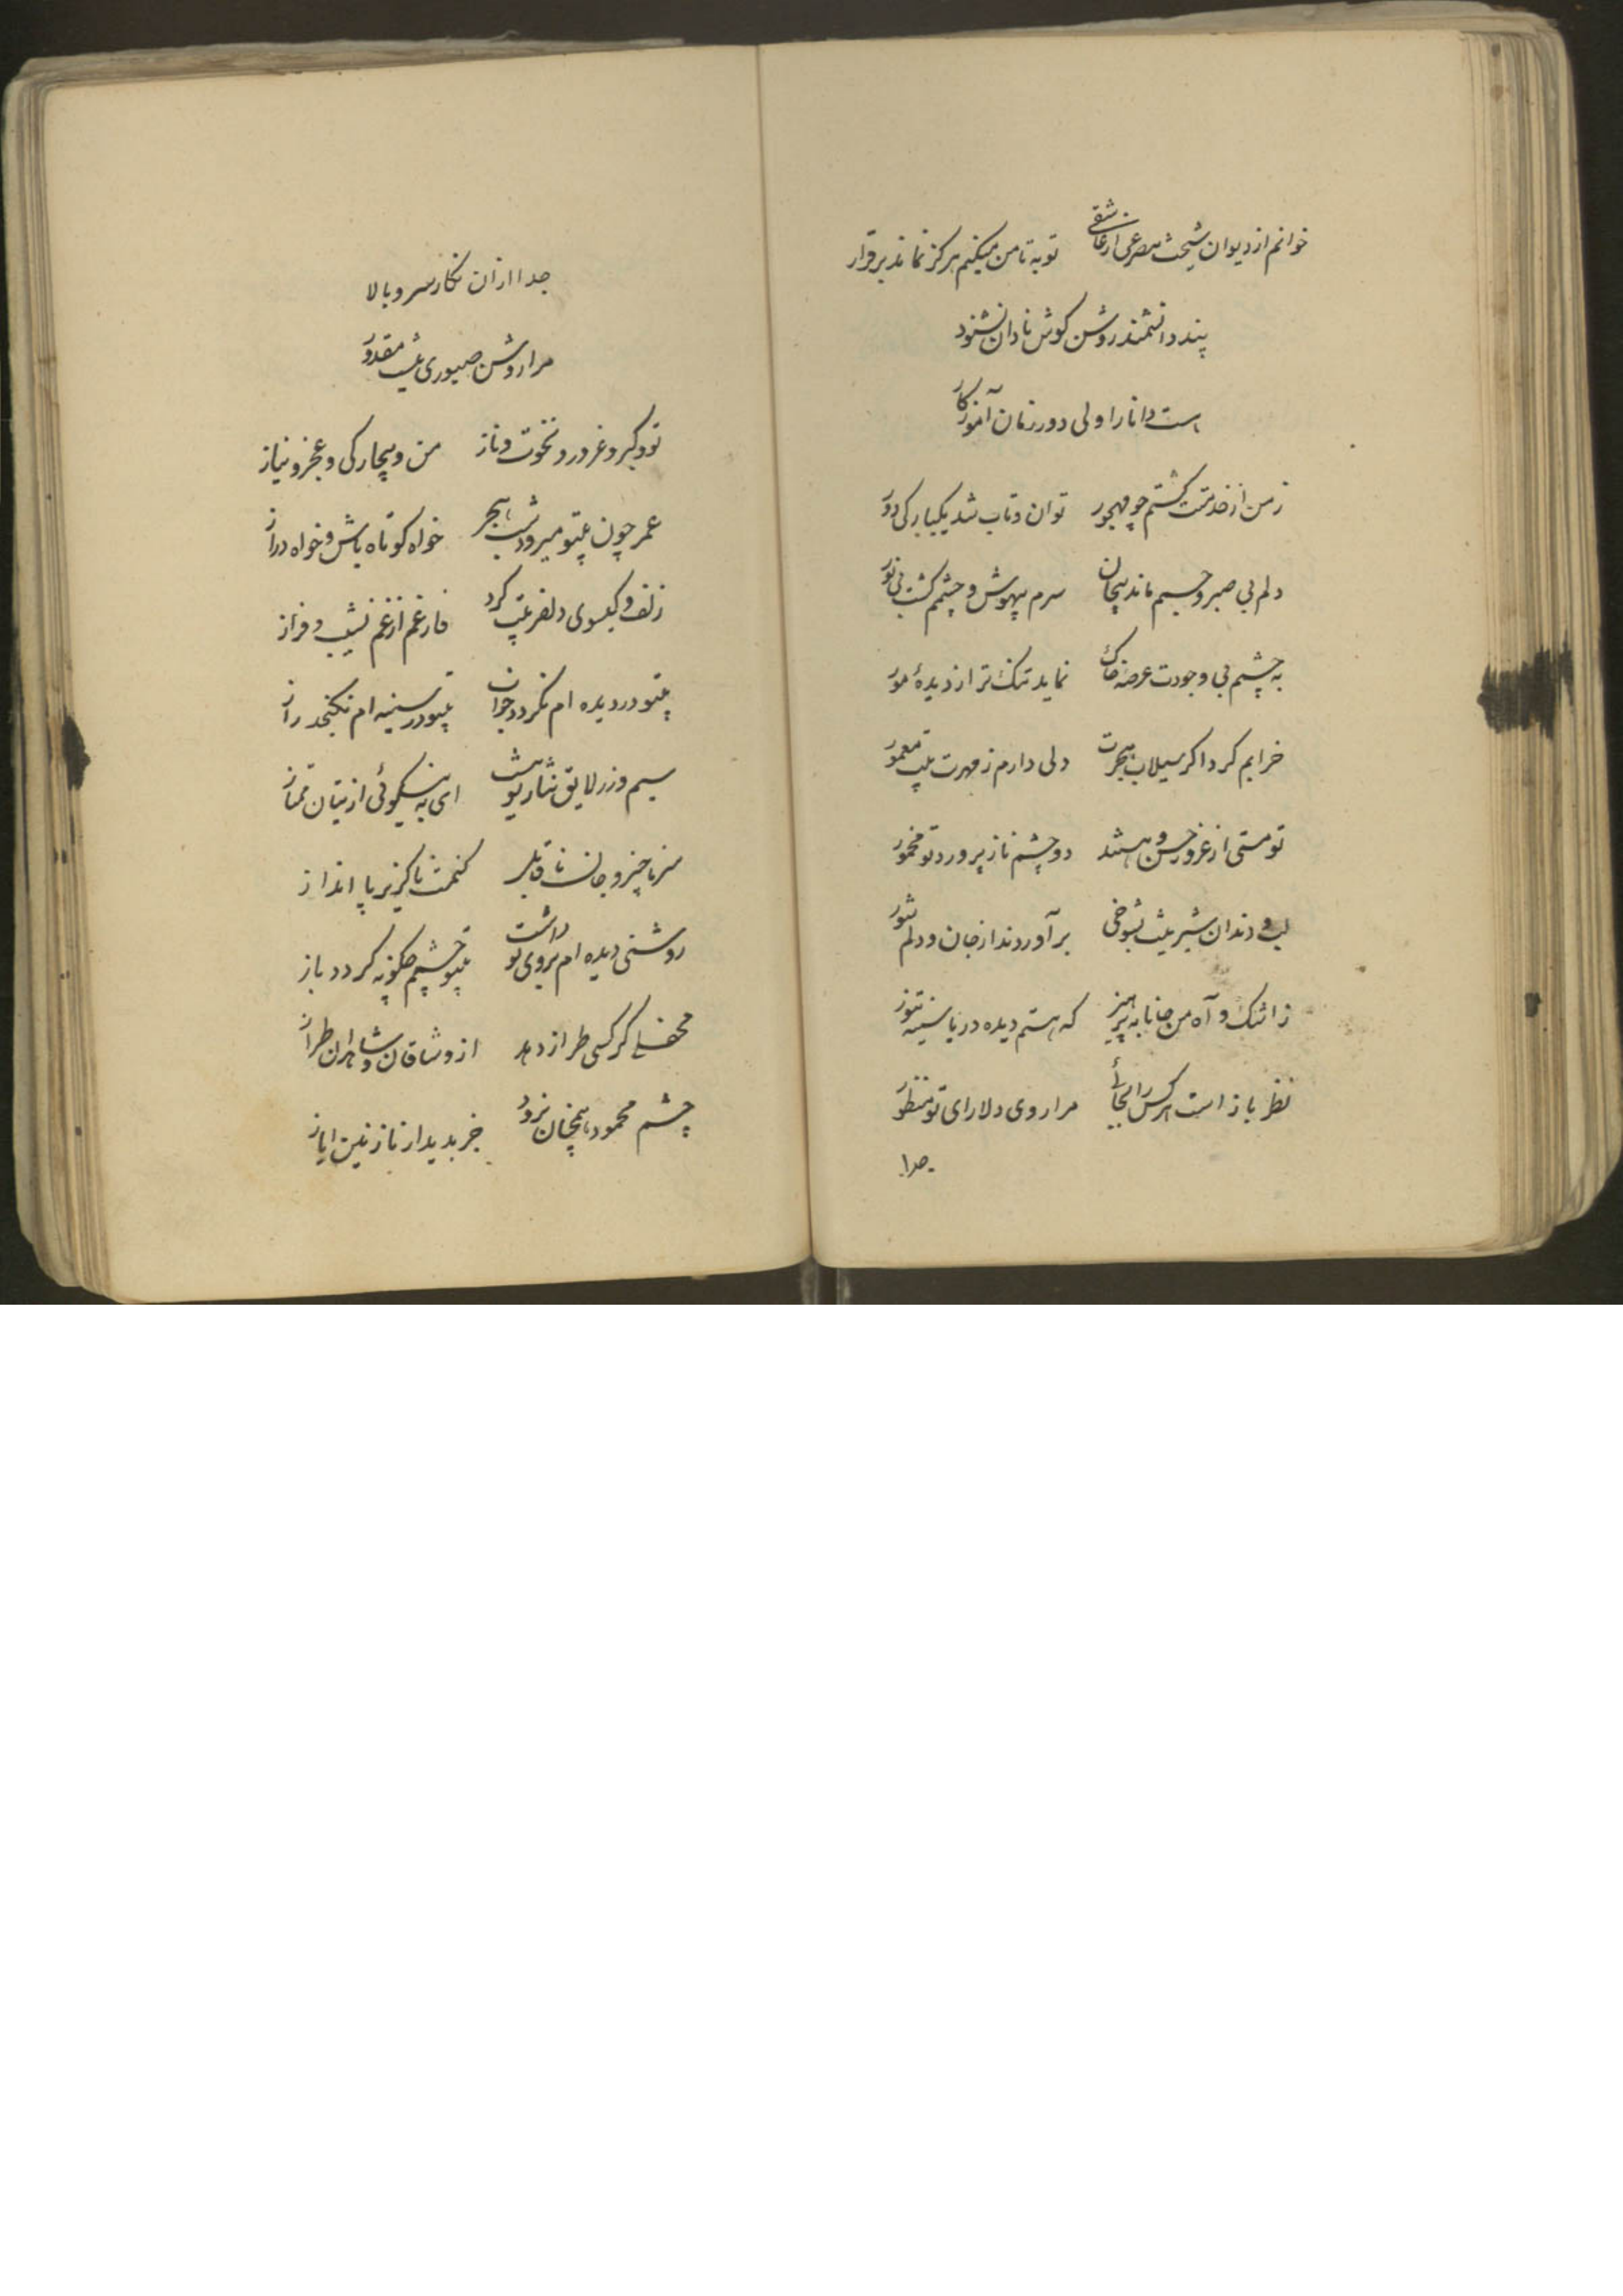 خوانم از دیوان شیخت مصرعی از عاشقی توبه تا من میکنم هرکز نماند برقرار
پند دانشمند روشن کوش نادان نشنود
است دانا را ولی دور زمان آموزکار
ز من از خدمتت کشتم چو مهجور توان و تاب شد یکبارکی دور
دلم بی صبر و جسم ماند پیجان سرم بیهوش و چشمم کشت بی نور
به چشمم بی وجودت عرصه خاک نماید تنک تر از دیدهٔ مور
خرابم کرد اکر سیلاب هجرت دلی دارم ز مهرت بیت معمور
تو مستی از غرور حسن و هستند دو چشم نازپرورد تو مخمور
لب و دندان شیرینت بشوخی برآوردند از جان و دلم شور
ز اشک و آه من جانا به پرهیز که هستم دیده دریا سینه تنور
نظر باز است هرکس را بجائی مرا روی دلارای تو منظور
جدا
جدا از ان نکار سرو بالا
مرا روشن صبوری نیست مقدور
تو و کبر و غرور و نخوت و ناز من و بیچارکی و عجز و نیاز
عمر چون بیتو میرود شب هجر خواه کوتاه باش و خواه دراز
زلف و کیسوی دلفریبت کرد فارغم از غم نشیب و فراز
بیتو در دیده ام نکردد خواب بیتو در سینه ام نکنجد راز
سیم و زر لایق نثار تو نیست ای به نیکوئی از بتان ممتاز
سر ناچیز و جان ناقابل کنمت ناکزیر پا انداز
روشنی دیده ام بروی تو داشت بیتو چشمم چکونه کردد باز
محفلی کر کسی طراز دهد از وشاقان و شاهدان طراز
چشم محمود همچنان نرود جز بدیدار نازنین ایاز